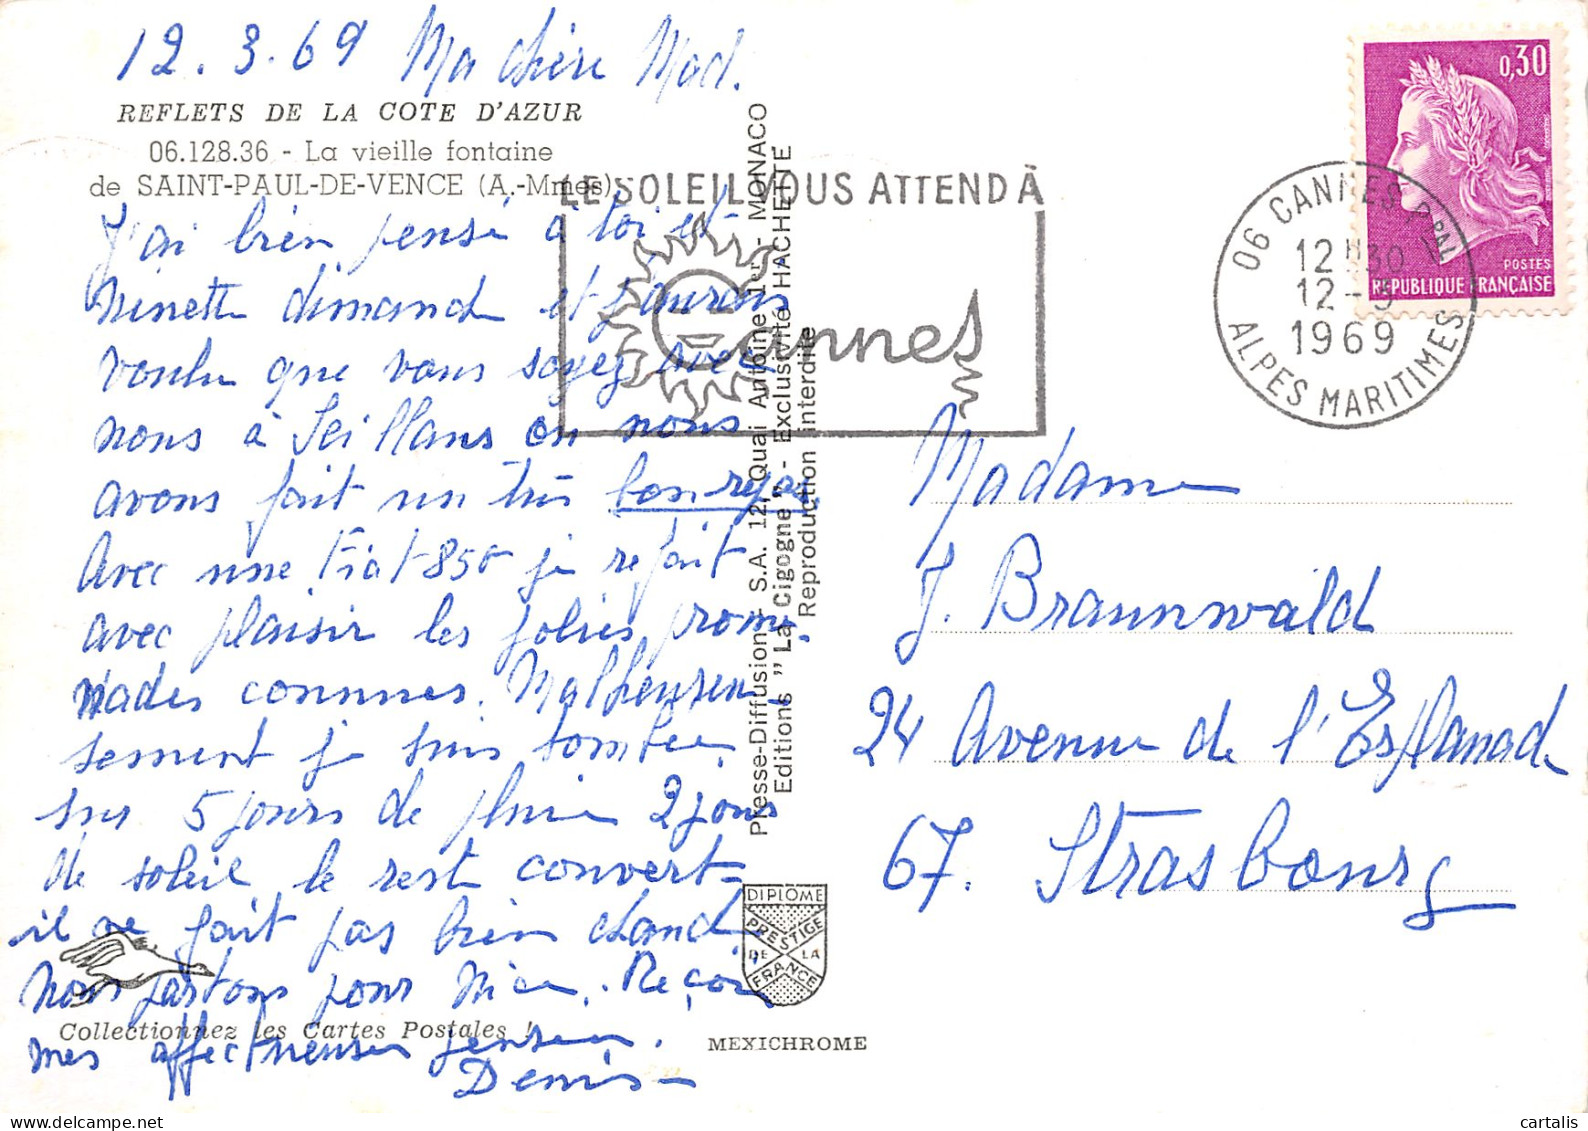 12.3.69 Ma chère Mad.
REFLETS DE LA COTE D'AZUR
06.128.36 - La vieille fontaine
de SAINT-PAUL-DE-VENCE (A.-Mmes)
J'ai bien pensé à toi et
Ninette dimanche et j'aurais
voulu que vous soyez avec
nous à Seillans où nous
avons fait un très bon repas.
Avec une Fiat 850 je refait
avec plaisir les jolies prome-
nades connues. Malheureu-
sement je suis tombée
sur 5 jours de pluie 2 jours
de soleil le reste couvert-
il ne fait pas bien chaud.
Nous partons pour Nice. Reçois
mes affectueuses pensées.
Denis
Collectionnez les Cartes Postales !
LE SOLEIL VOUS ATTEND À
Cannes
Presse-Diffusion - S.A. 12, Quai Antoine 1er - MONACO
Editions "La Cigogne" - Exclusivité HACHETTE
Reproduction interdite
DIPLOME
PRESTIGE
DE LA
FRANCE
MEXICHROME
0,30
POSTES
REPUBLIQUE FRANÇAISE
06 CANNES PPAL
12H30
12-3
1969
ALPES MARITIMES
Madame
J. Braunwald
24 Avenue de l'Esplanade
67. Strasbourg
cartalis
delcampe.net